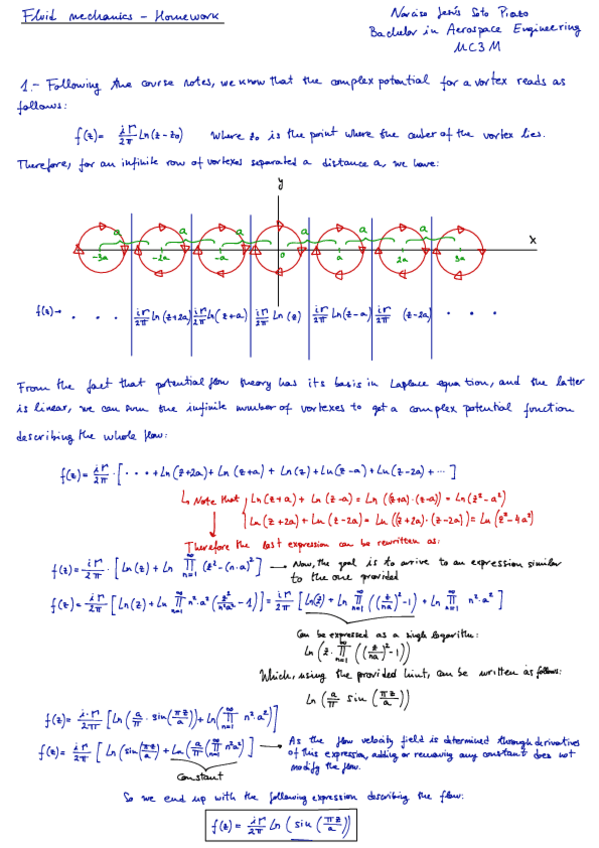 Fluid mechanics - Homework
Narciso Jesús Soto Prazo
Bachelor in Aerospace Engineering
UC3M
1.- Following the course notes, we know that the complex potential for a vortex reads as
follows:
f(z) = iΓ/2π Ln(z-z₀) where z₀ is the point where the center of the vortex lies.
Therefore, for an infinite row of vortexes separated a distance a, we have:
y
a a a a a a
x
-3a -2a -a 0 a 2a 3a
f(z) → · · · iΓ/2π Ln(z+2a) iΓ/2π Ln(z+a) iΓ/2π Ln(z) iΓ/2π Ln(z-a) iΓ/2π (z-2a) · · ·
From the fact that potential flow theory has its basis in Laplace equation, and the latter
is linear, we can sum the infinite number of vortexes to get a complex potential function
describing the whole flow:
f(z) = iΓ/2π · [· · · + Ln(z+2a) + Ln(z+a) + Ln(z) + Ln(z-a) + Ln(z-2a) + ···]
Note that { Ln(z+a) + Ln(z-a) = Ln((z+a)·(z-a)) = Ln(z²-a²)
Ln(z+2a) + Ln(z-2a) = Ln((z+2a)·(z-2a)) = Ln(z²-4a²)
Therefore the last expression can be rewritten as:
f(z) = iΓ/2π · [Ln(z) + Ln ∏_{n=1}^∞ (z²-(n·a)²)] → Now, the goal is to arrive to an expression similar
to the one provided
f(z) = iΓ/2π [Ln(z) + Ln ∏_{n=1}^∞ n²·a² (z²/n²a² - 1)] = iΓ/2π [Ln(z) + Ln ∏_{n=1}^∞ ((z/na)² - 1) + Ln ∏_{n=1}^∞ n²·a²]
Can be expressed as a single logarithm:
Ln(z·∏_{n=1}^∞ ((z/na)² - 1))
Which, using the provided hint, can be written as follows:
Ln(a/π sin(πz/a))
f(z) = i·Γ/2π [Ln(a/π · sin(πz/a)) + Ln(∏_{n=1}^∞ n²·a²)]
f(z) = i·Γ/2π [Ln(sin(πz/a) + Ln(a/π (∏_{n=1}^∞ n²a²)] → As the flow velocity field is determined through derivatives
of this expression, adding or removing any constant does not
modify the flow.
Constant
So we end up with the following expression describing the flow:
f(z) = iΓ/2π Ln(sin(πz/a))